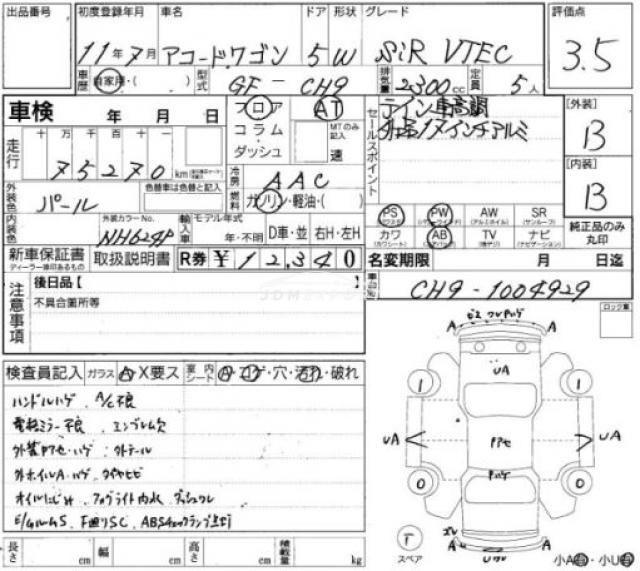 出品番号 初度登録年月 車名 ドア 形状 グレード 評価点
11年7月 アコードワゴン 5 W SiR VTEC 3.5
車歴 自家用・( ) 型式 GF-CH9 排気量 2300cc 定員 5人
車検 年 月 日 フロア AT セールスポイント テイン車高調 [外装]
コラム・ MTのみ記入 B
走行 十 万 千 百 十 一 ダッシュ 速
75270 km 冷房 AAC [内装]
外装色 パール 色替車は色替と記入 燃料 ガソリン・軽油・( ) B
外装カラーNo. 輸入車 モデル年式 PS PW AW SR
内装色 NH624P 年・不明 D車・並 右H・左H カワ AB TV ナビ 純正品のみ丸印
新車保証書 取扱説明書 R券 ¥12,340 名変期限 月 日迄
ディーラー捺印あるもの
注意事項 後日品【 】 車台No. CH9-1004929
不具合箇所等 ロック車
JDM
A A
UA
検査員記入 ガラス A・X要ス 室内シート A・コゲ・穴・汚れ・破れ
1 1
ハンドルハゲ A/C不良
電格ミラー不良 エンブレム欠
UA UA
外装Pアセ・ハゲ 外テール Pアセ
外ホイルA・ハゲ タイヤヒビ Pハゲ
0 0
オイルにじみ フォグライト内水 ダッシュワレ
下廻りSC ABSチェックランプ点灯
T スペア
A A
長さ cm 幅 cm 高さ cm 積載量 kg 小A・小U